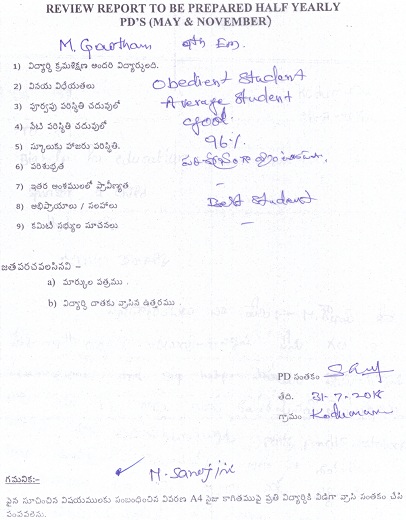 REVIEW REPORT TO BE PREPARED HALF YEARLY
PD'S (MAY & NOVEMBER)
M. Gowtham 9th Em.
1) విద్యార్థి క్రమశిక్షణ అందరి విద్యార్థులది.
2) వినయ విధేయతలు Obedient Student
3) పూర్వపు పరిస్థితి చదువులో Average Student
4) నేటి పరిస్థితి చదువులో Good.
5) స్కూలుకు హాజరు పరిస్థితి. 96%
6) పరిశుభ్రత
7) ఇతర అంశములలో ప్రావీణ్యత –
8) అభిప్రాయాలు / సలహాలు Best Student
9) కమిటీ సభ్యుల సూచనలు –
జతపరచవలసినవి :–
a) మార్కుల పత్రము .
b) విద్యార్థి దాతకు వ్రాసిన ఉత్తరము .
PD సంతకం
తేది. 31-7-2018
గ్రామం
గమనిక:-
పైన సూచించిన విషయములకు సంబంధించిన వివరణ A4 సైజు కాగితముపై ప్రతి విద్యార్థికి విడిగా వ్రాసి సంతకం చేసి
పంపవలెను.